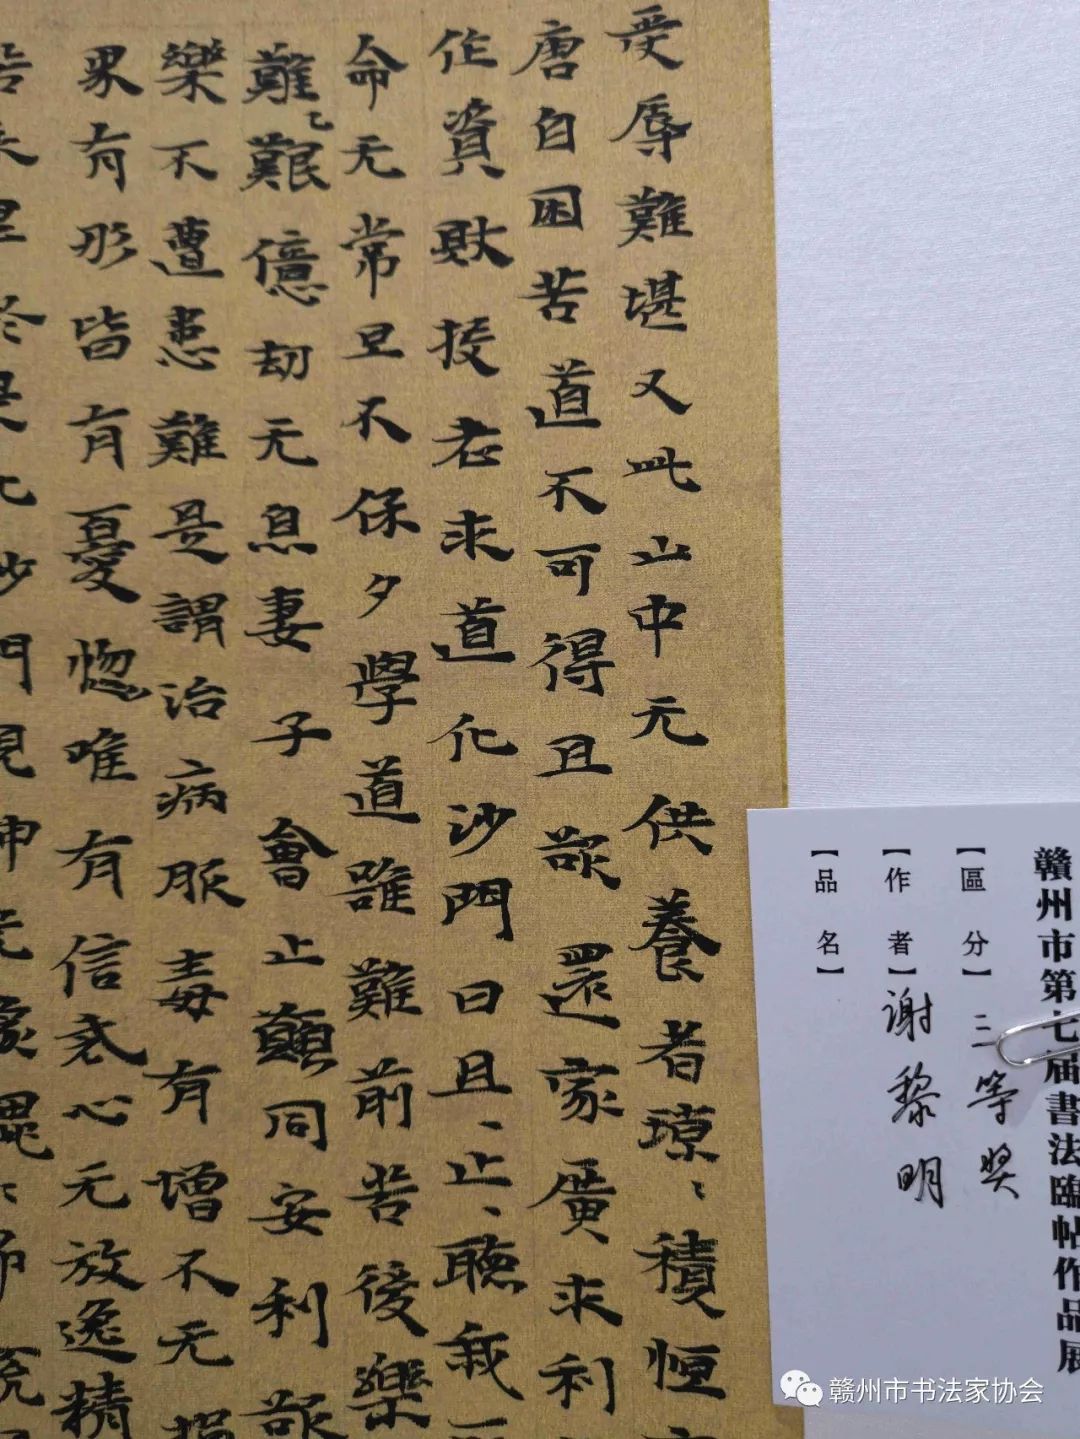 受辱難堪又此山中元供養者璟、積恒
唐自困苦道不可得且欲還家廣求利
作資財投老求道化沙門曰且、止、聽我
命无常旦不保夕學道雖難前苦後樂
難、艱億劫无息妻子會止顛同安利欲
樂不遭患難是謂治病服毒有增不无損
界有形皆有憂惚唯有信戒心无放逸精
贛州市第七届書法臨帖作品展
【區分】 二等奖
【作者】 谢黎明
【品名】
赣州市书法家协会